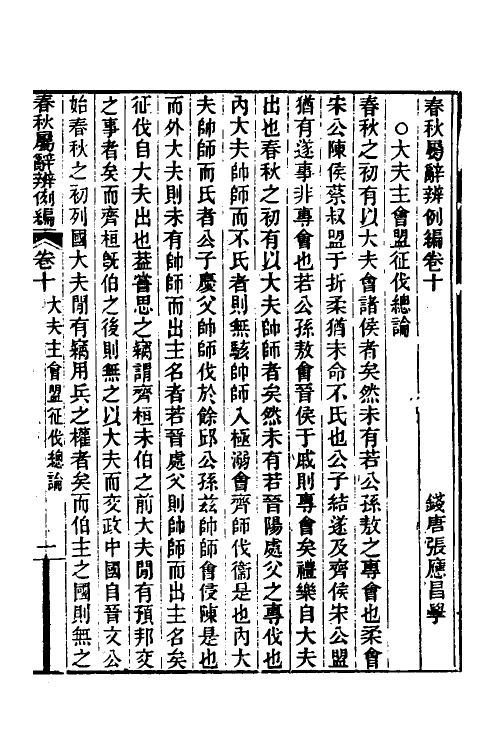 春秋屬辭辨例編卷十
錢唐張應昌學
○大夫主會盟征伐總論
春秋之初有以大夫會諸侯者矣然未有若公孫敖之專會也柔會
宋公陳侯蔡叔盟于折柔猶未命不氏也公子結遂及齊侯宋公盟
猶有遂事非專會也若公孫敖會晉侯于戚則專會矣禮樂自大夫
出也春秋之初有以大夫帥師者矣然未有若晉陽處父之專伐也
內大夫帥師而不氏者則無駭帥師入極溺會齊師伐衞是也內大
夫帥師而氏者公子慶父帥師伐於餘邱公孫茲帥師會侵陳是也
而外大夫則未有帥師而出主名者若晉處父則帥師而出主名矣
征伐自大夫出也葢嘗思之竊謂齊桓未伯之前大夫閒有預邦交
之事者矣而齊桓旣伯之後則無之以大夫而交政中國自晉文公
始春秋之初列國大夫閒有竊用兵之權者矣而伯主之國則無之
春秋屬辭辨例編
卷十
大夫主會盟征伐總論
一